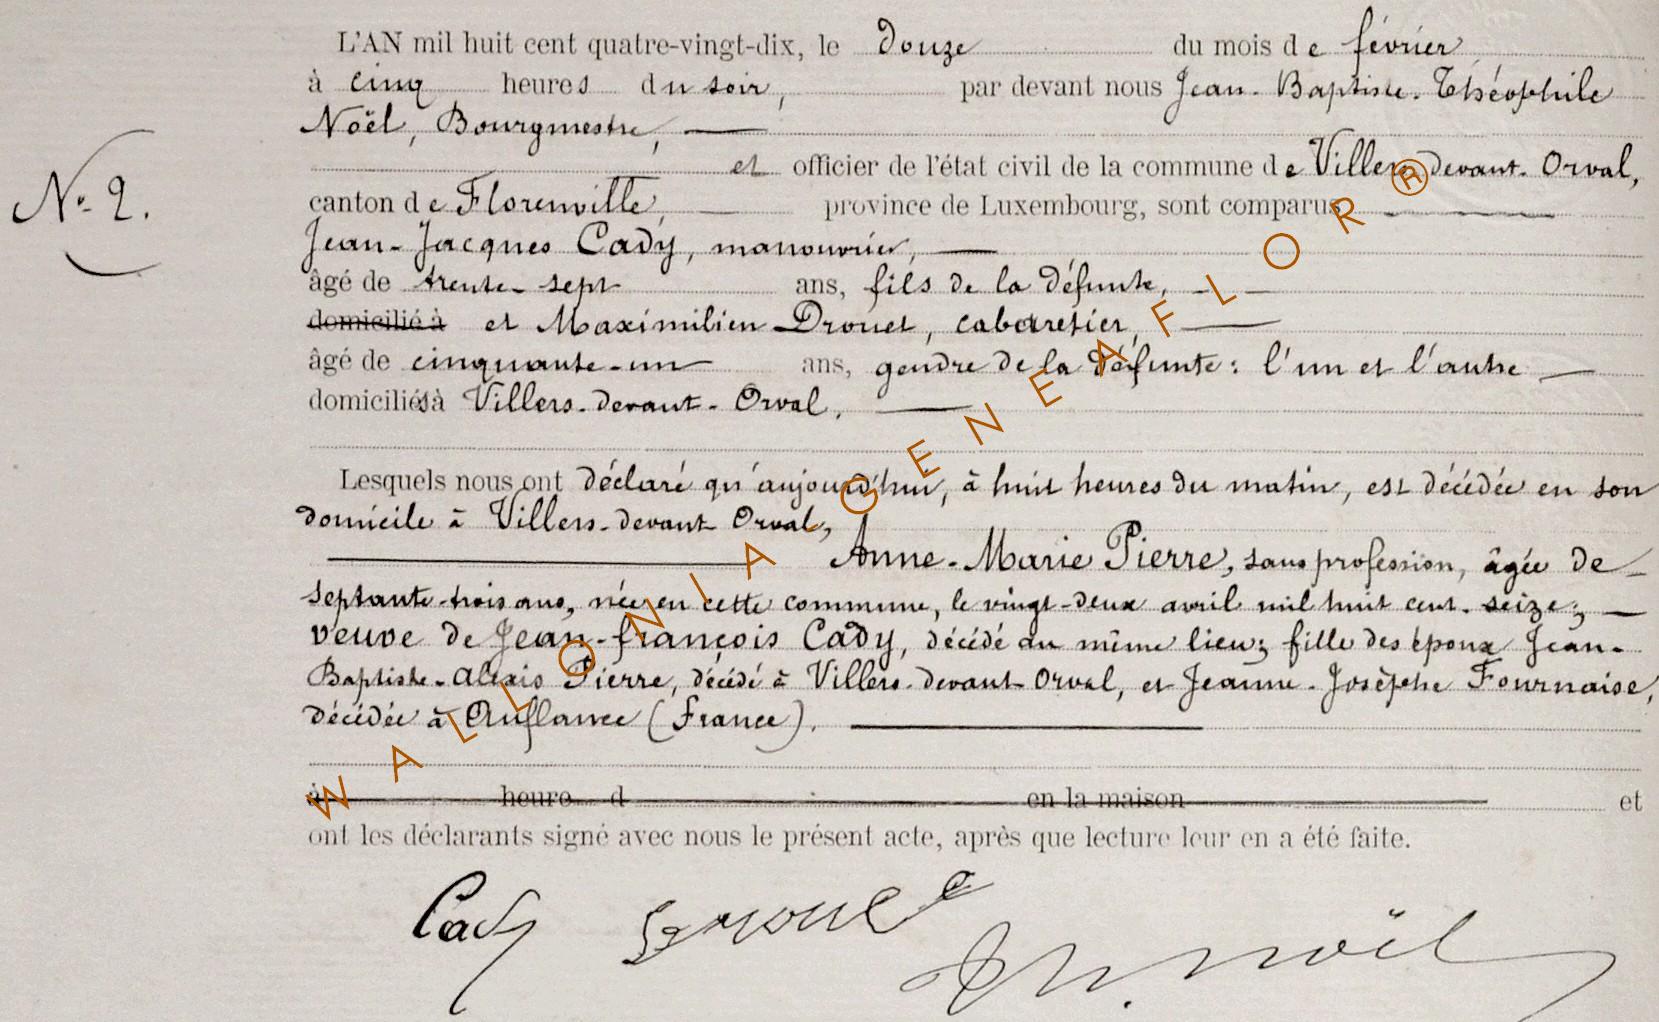 L'AN mil huit cent quatre-vingt-dix, le douze du mois de février
à cinq heures du soir, par devant nous Jean-Baptiste-Théophile
Noël, Bourgmestre,
et officier de l'état civil de la commune de Villers-devant-Orval,
N° 2.
canton de Florenville, province de Luxembourg, sont comparus
Jean-Jacques Cady, manouvrier,
âgé de trente-sept ans, fils de la défunte,
domicilié à et Maximilien Drouet, cabaretier,
âgé de cinquante-un ans, gendre de la défunte : l'un et l'autre
domiciliés à Villers-devant-Orval,
Lesquels nous ont déclaré qu'aujourd'hui, à huit heures du matin, est décédée en son
domicile à Villers-devant-Orval,
Anne-Marie Pierre, sans profession, âgée de
septante-trois ans, née en cette commune, le vingt-deux avril mil huit cent-seize ;
veuve de Jean-François Cady, décédé au même lieu ; fille des époux Jean-
Baptiste-Alexis Pierre, décédé à Villers-devant-Orval, et Jeanne-Josèphe Fournaise,
décédée à Auflance (France).
à heure d en la maison et
ont les déclarants signé avec nous le présent acte, après que lecture leur en a été faite.
Cady Th. Noël
WALLONIA GENEAFLOR®